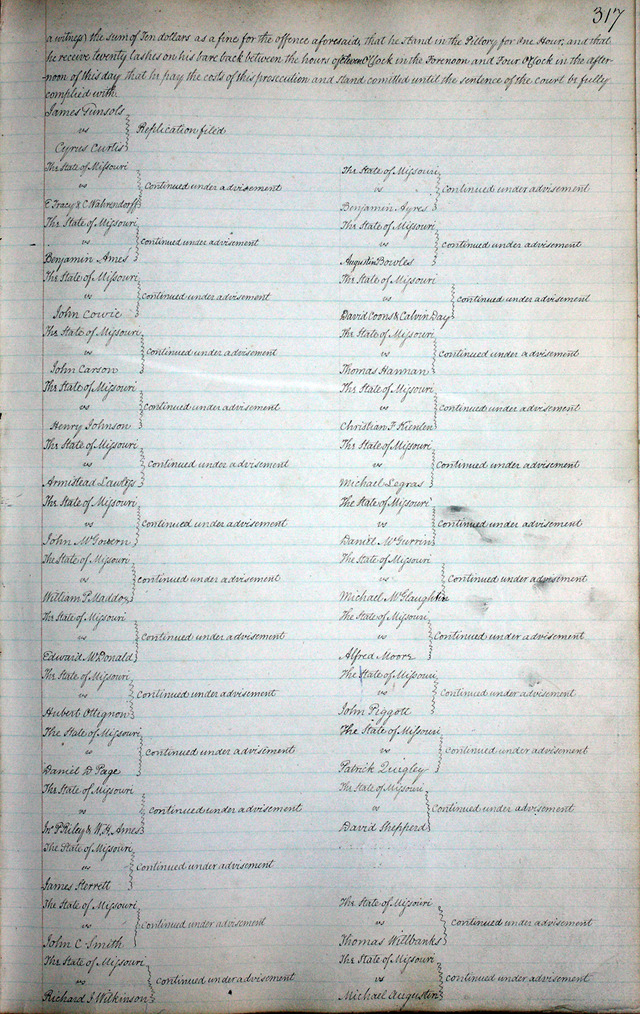 317
a witness) the sum of Ten dollars as a fine for the offence aforesaid, that he stand in the Pillory for One Hour, and that
he receive twenty lashes on his bare back between the hours of Eleven O'Clock in the Forenoon and Four O'Clock in the after-
noon of this day that he pay the costs of this prosecution and stand comitted until the sentence of the court be fully
complied with
James Tunsols
vs Replication filed
Cyrus Curtis
The State of Missouri
vs Continued under advisement
E Tracy & C Wahrendorff
The State of Missouri
vs Continued under advisement
Benjamin Ayres
The State of Missouri
vs Continued under advisement
Benjamin Ames
The State of Missouri
vs Continued under advisement
Augustin Bowles
The State of Missouri
vs Continued under advisement
John Cowie
The State of Missouri
vs Continued under advisement
David Coons & Calvin Day
The State of Missouri
vs Continued under advisement
John Carson
The State of Missouri
vs Continued under advisement
Thomas Hannan
The State of Missouri
vs Continued under advisement
Henry Johnson
The State of Missouri
vs Continued under advisement
Christian F Kienlen
The State of Missouri
vs Continued under advisement
Armistead Lawless
The State of Missouri
vs Continued under advisement
Michael Legras
The State of Missouri
vs Continued under advisement
John McGovern
The State of Missouri
vs Continued under advisement
Daniel McGurrin
The State of Missouri
vs Continued under advisement
William P. Maddox
The State of Missouri
vs Continued under advisement
Michael McGlaughlin
The State of Missouri
vs Continued under advisement
Edward McDonald
The State of Missouri
vs Continued under advisement
Alfred Moore
The State of Missouri
vs Continued under advisement
Hubert Ottignon
The State of Missouri
vs Continued under advisement
John Piggott
The State of Missouri
vs Continued under advisement
Daniel D Page
The State of Missouri
vs Continued under advisement
Patrick Quigley
The State of Missouri
vs Continued under advisement
Jno P Riley & W. H. Ames
The State of Missouri
vs Continued under advisement
David Shepperd
The State of Missouri
vs Continued under advisement
James Sterrett
The State of Missouri
vs Continued under advisement
John C Smith
The State of Missouri
vs Continued under advisement
Thomas Willbanks
The State of Missouri
vs Continued under advisement
Richard J Wilkinson
The State of Missouri
vs Continued under advisement
Michael Augustin